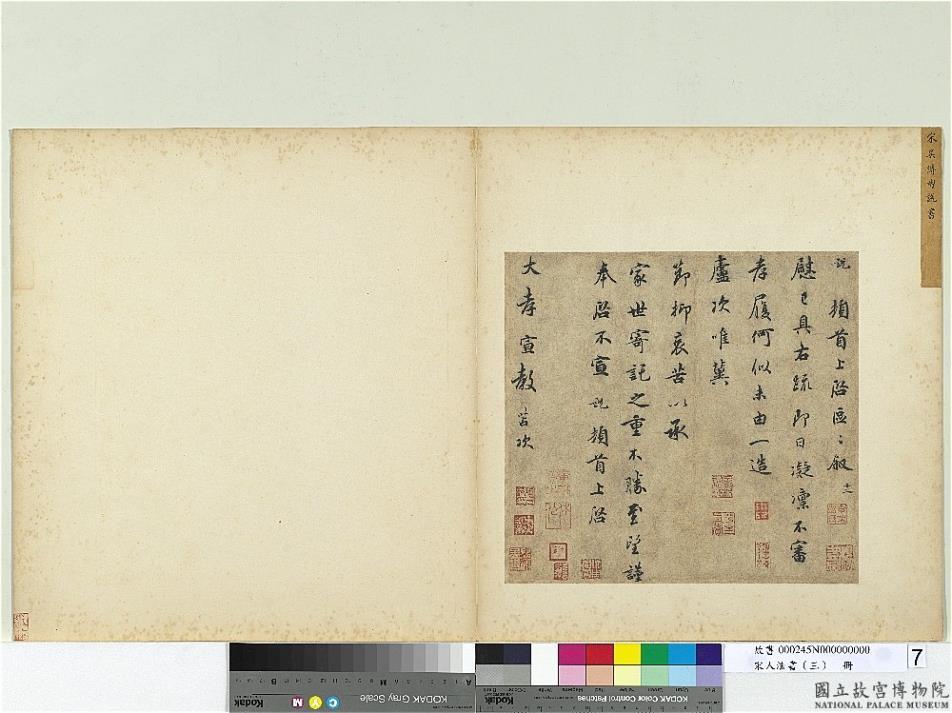 宋吳傅朋說書
說 頓首上啓區〻叙
慰已具右疏即日凝凜不審
孝履何似未由一造
廬次唯冀
節抑哀苦以承
家世寄託之重不勝至望謹
奉啓不宣 說 頓首上啓
大孝宣教 苫次
故書 000245N000000000
宋人法書(三) 冊
7
KODAK Gray Scale
Kodak
C
Y
M
KODAK Color Control Patches
Kodak
國立故宮博物院
NATIONAL PALACE MUSEUM